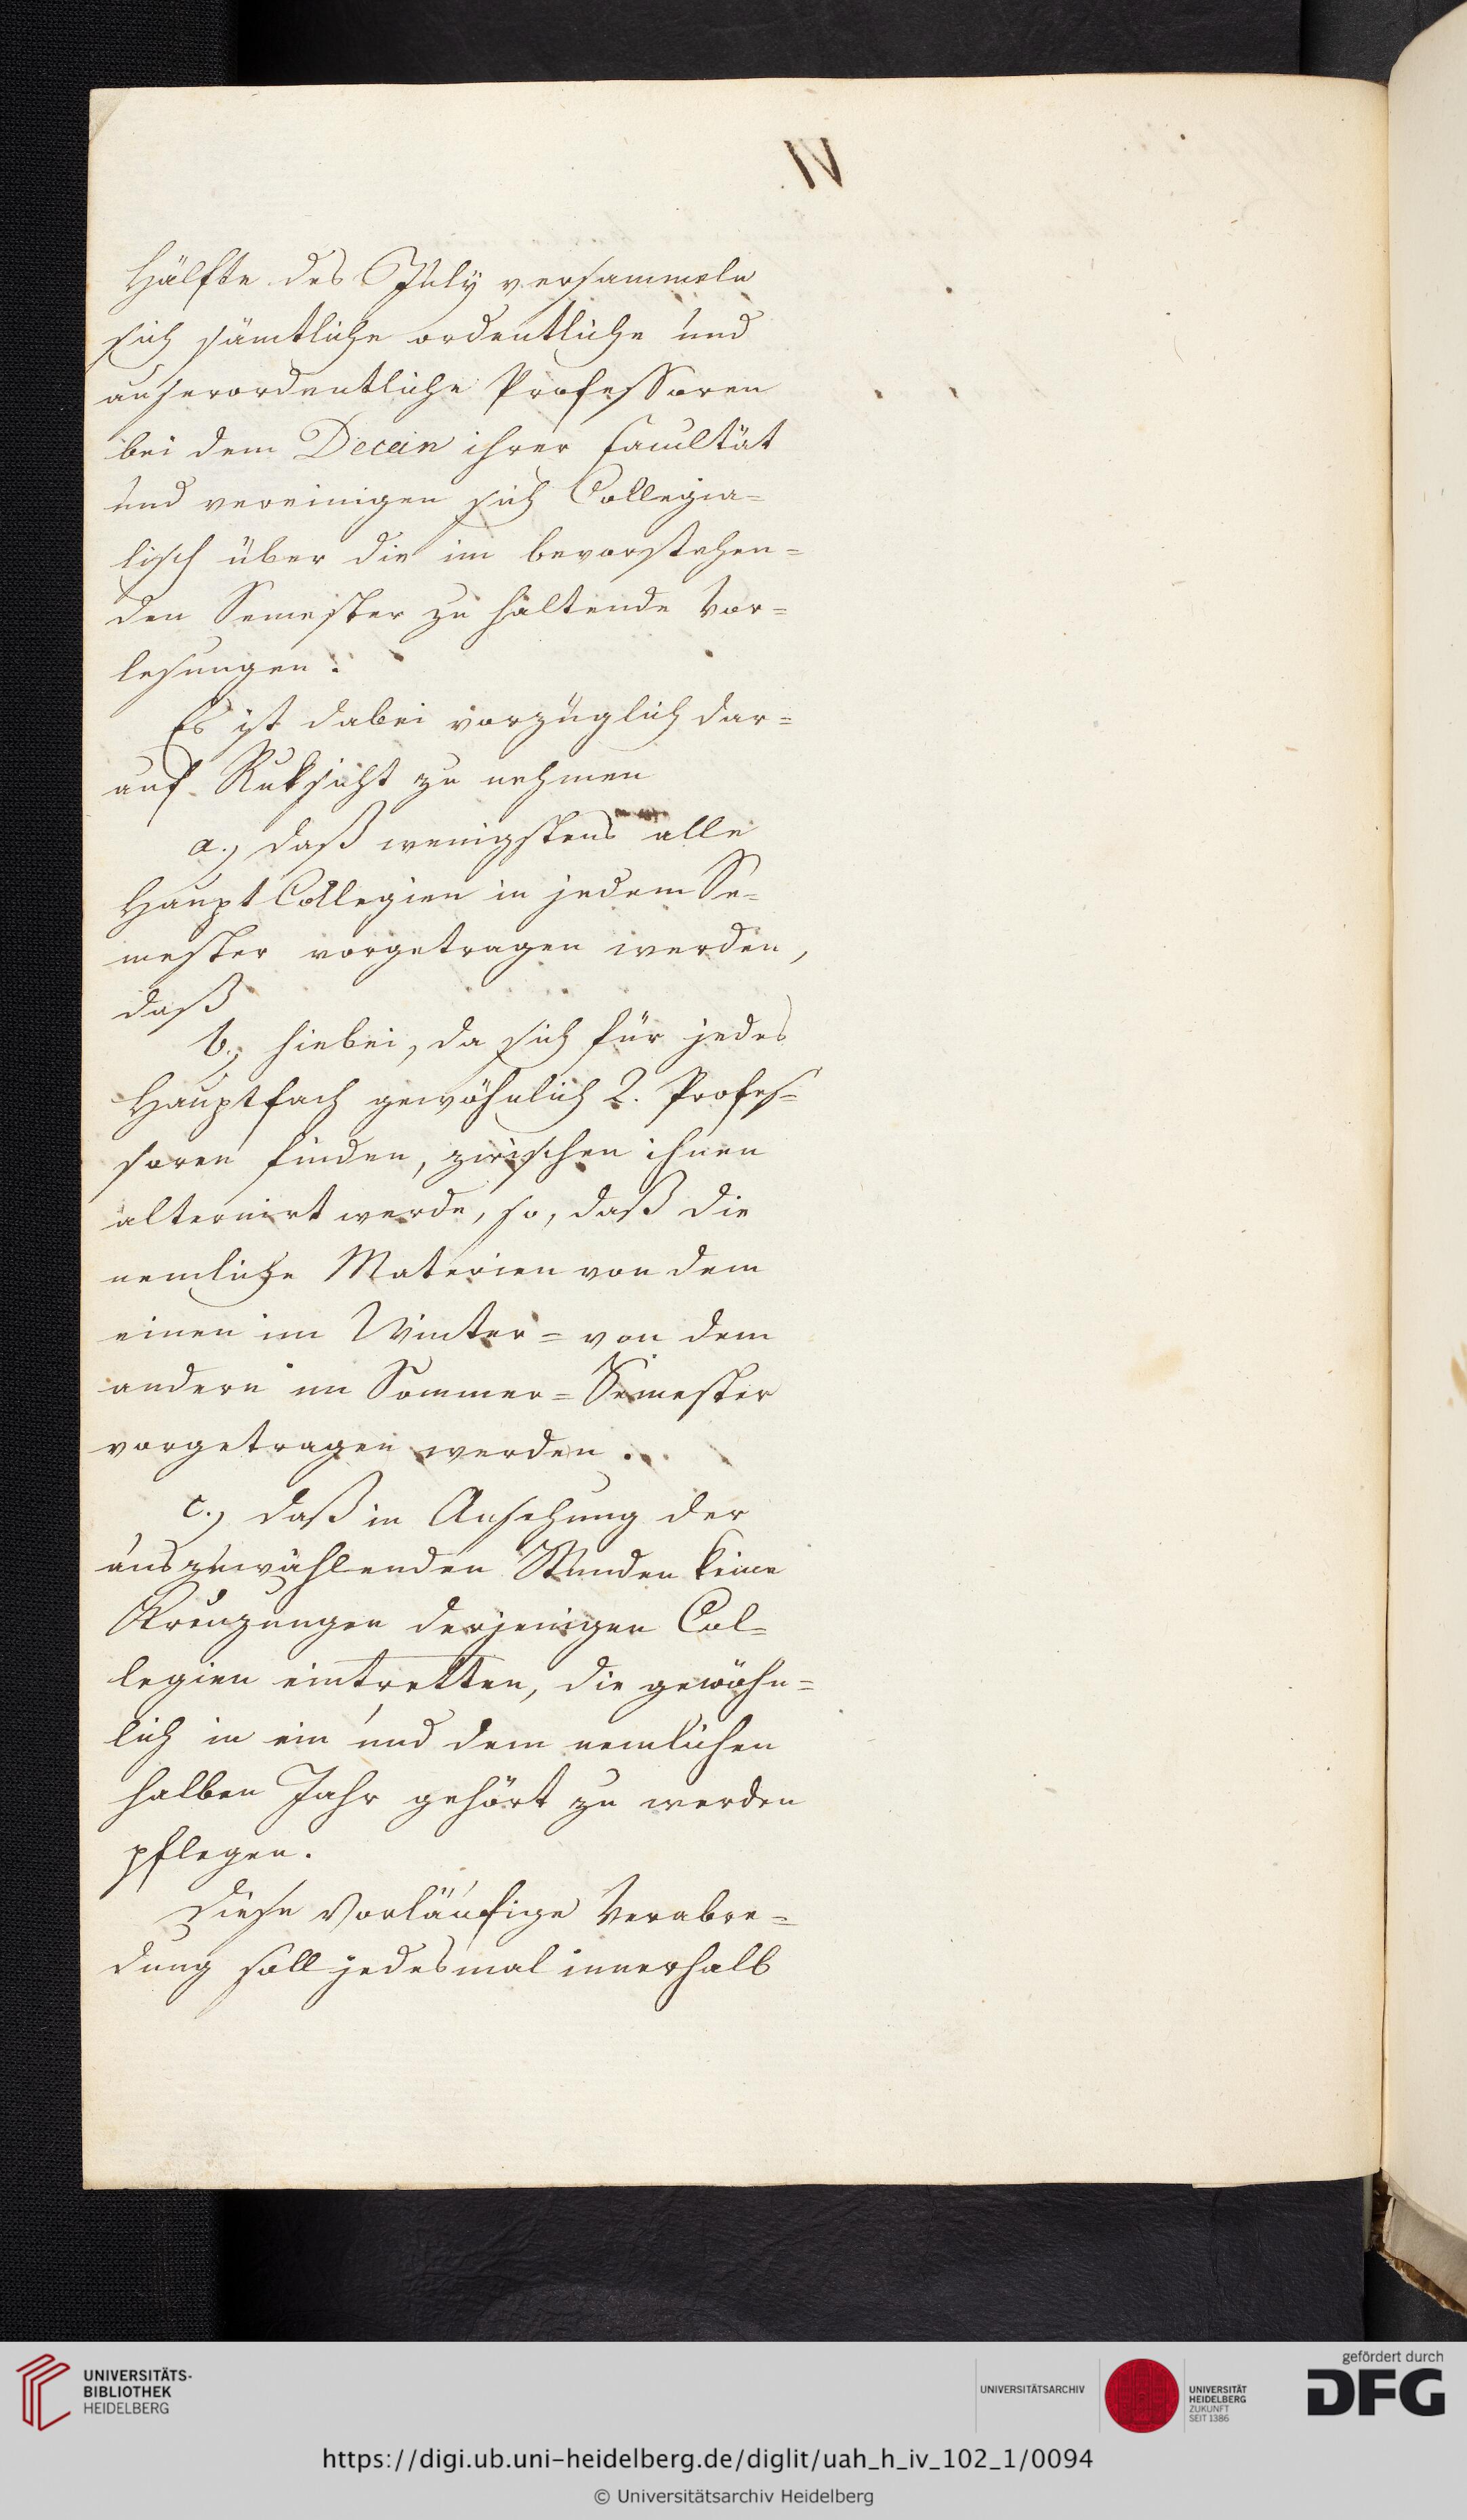 IV
Hälfte des July versammeln
sich sämtliche ordentliche und
auserordentliche Professoren
bei dem Decan ihrer Facultät
und vereinigen sich Collegia=
lisch über die im bevorstehen=
den Semester zu haltende Vor=
lesungen.
Es ist dabei vorzüglich dar=
auf Ruksicht zu nehmen
a.) daß wenigstens alle
Haupt Collegien in jedem Se=
mester vorgetragen werden,
daß
b.) hiebei, da sich für jedes
Hauptfach gewöhnlich 2. Profes=
soren finden, zwischen ihnen
alternirt werde, so, daß die
nemliche Materien von dem
einen im Winter= von dem
andern im Sommer=Semester
vorgetragen werden.
c.) daß in Ansehung der
auszuwählenden Stunden keine
Kreuzungen derjenigen Col=
legien eintretten, die gewöhn=
lich in ein und dem nemlichen
halben Jahr gehört zu werden
pflegen.
Diese Vorläufige Verabre=
dung soll jedesmal innerhalb
UNIVERSITÄTS-
BIBLIOTHEK
HEIDELBERG
UNIVERSITÄTSARCHIV
UNIVERSITÄT
HEIDELBERG
ZUKUNFT
SEIT 1386
gefördert durch
DFG
https://digi.ub.uni-heidelberg.de/diglit/uah_h_iv_102_1/0094
© Universitätsarchiv Heidelberg